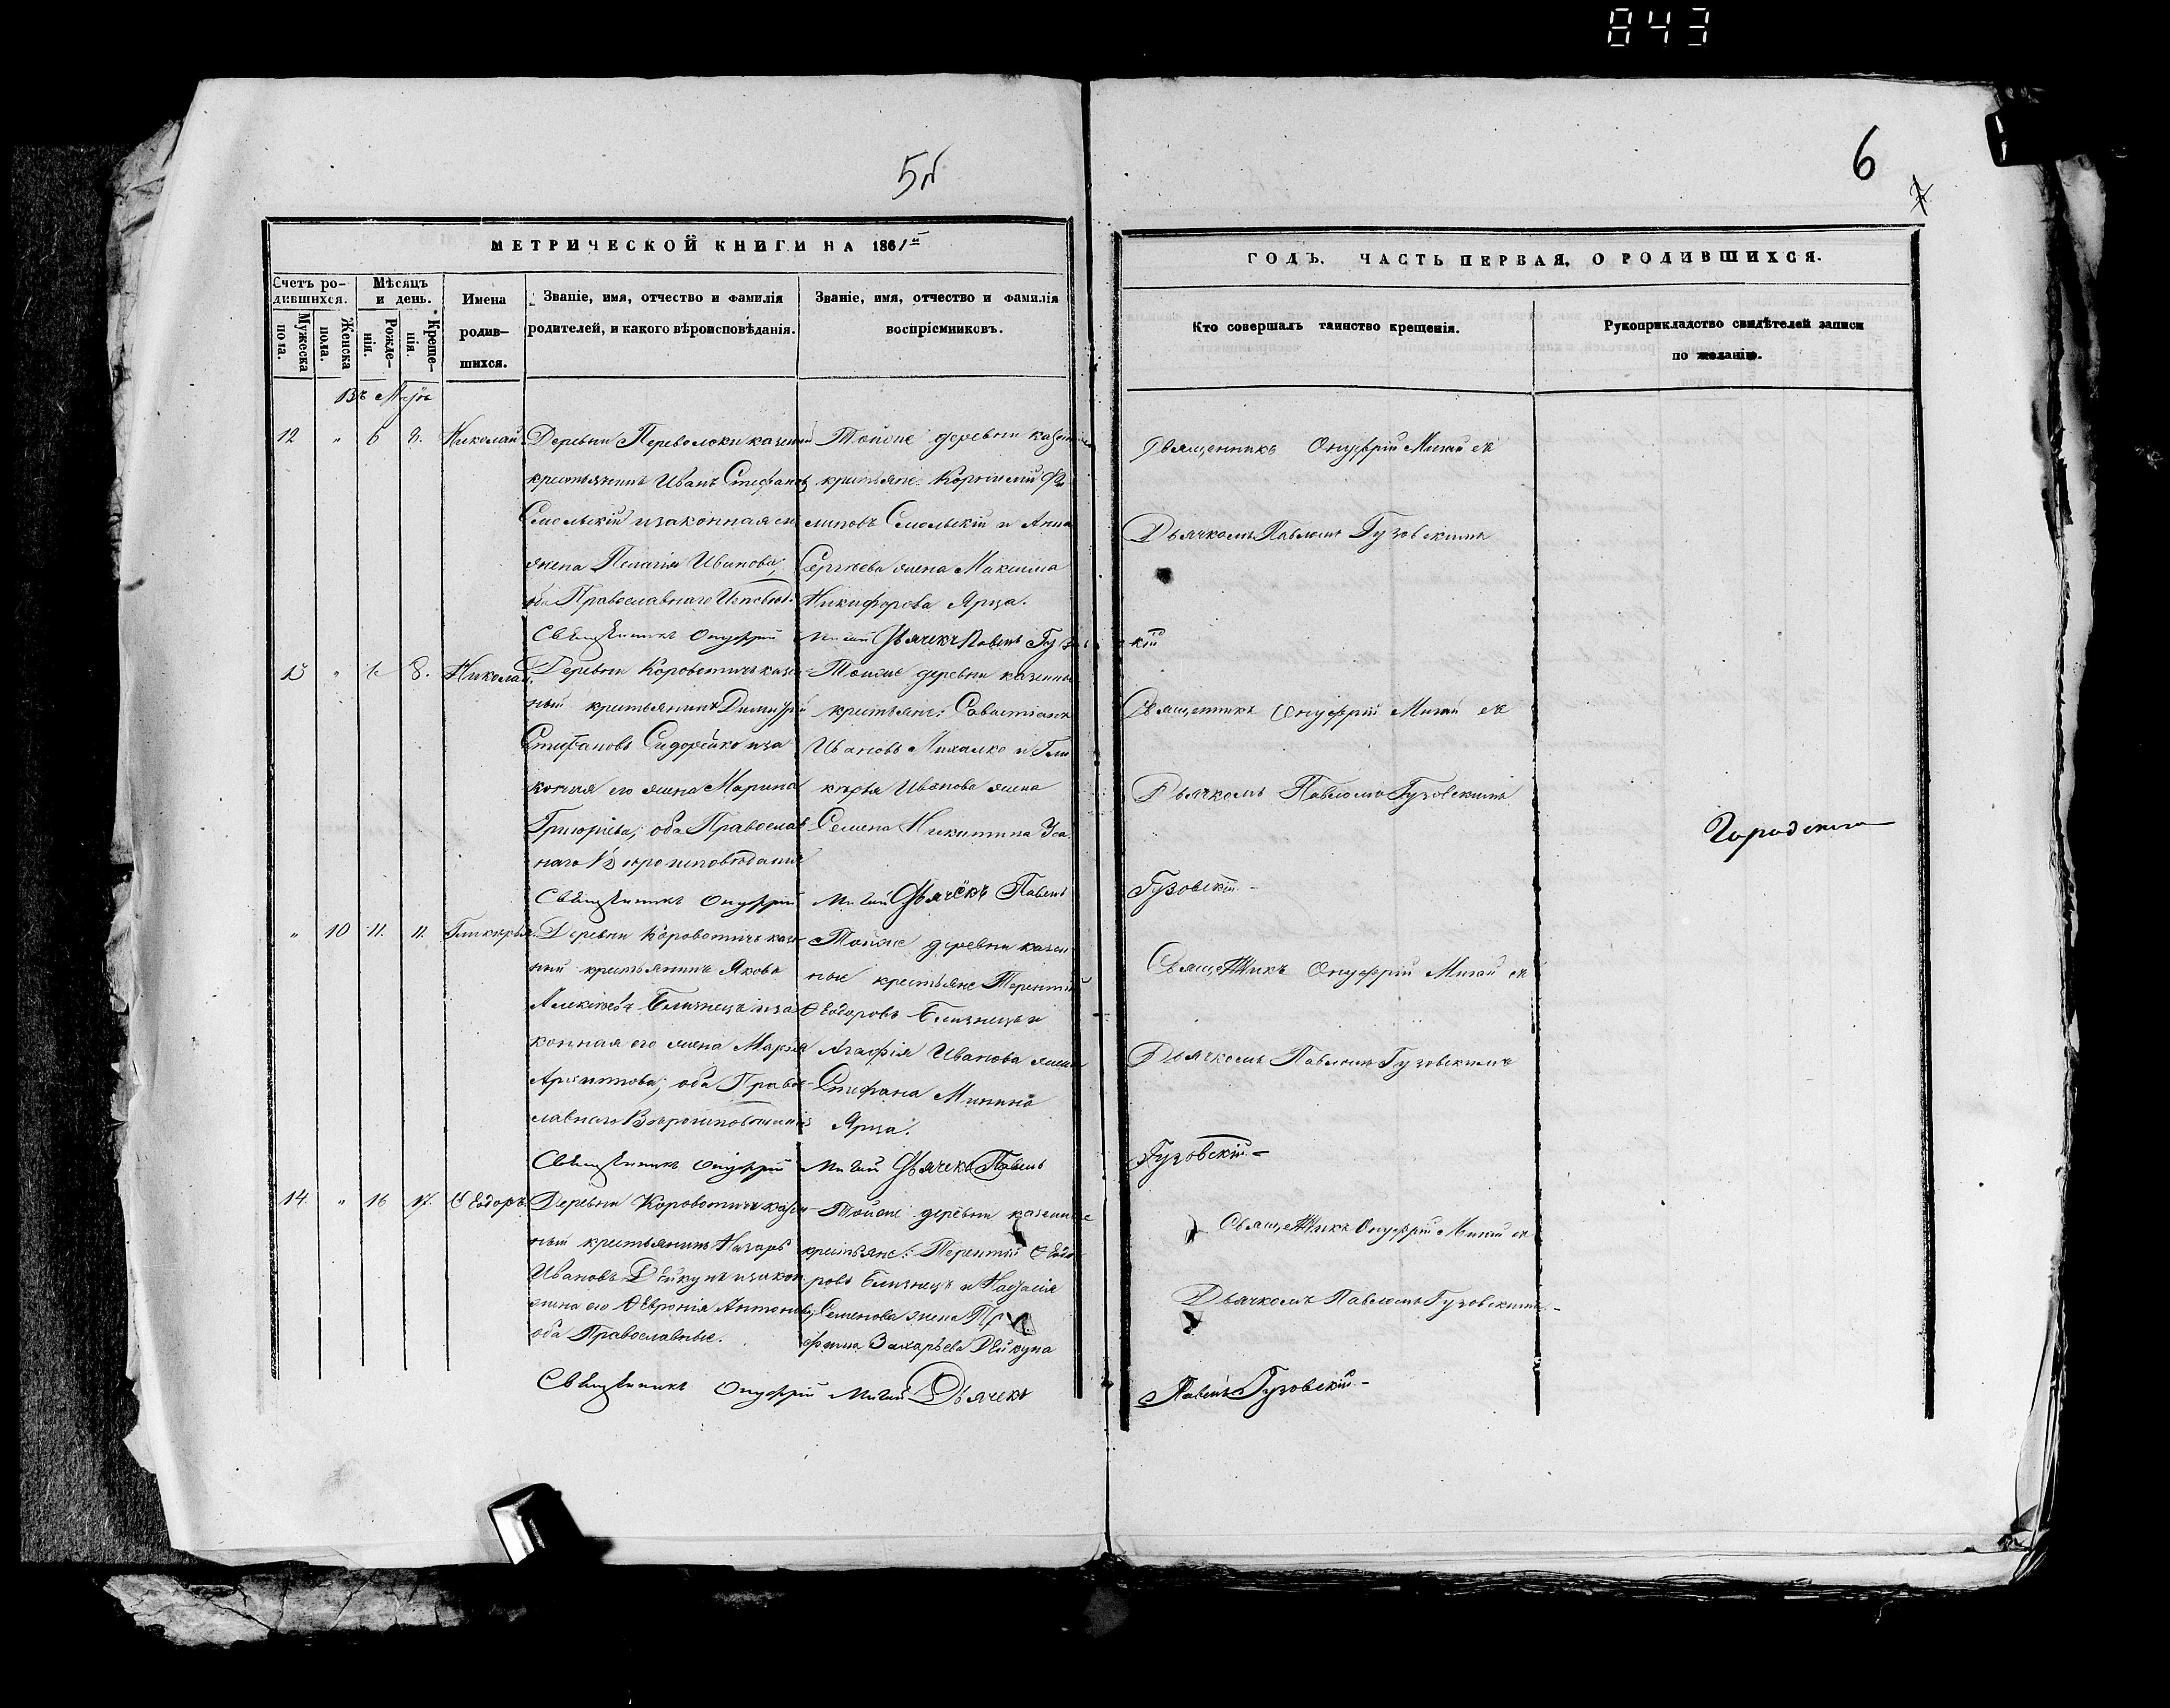 843
5
6
7
МЕТРИЧЕСКОЙ КНИГИ НА 1861
ГОДЪ. ЧАСТЬ ПЕРВАЯ, О РОДИВШИХСЯ.
Счетъ родившихся.
Мужеска пола.
Женска пола.
Мѣсяцъ и день.
Рожденія.
Крещенія.
Имена родившихся.
Званіе, имя, отчество и фамилія
родителей, и какого вѣроисповѣданія.
Званіе, имя, отчество и фамилія
воспріемниковъ.
Кто совершалъ таинство крещенія.
Рукоприкладство свидѣтелей записи
по желанію.
Въ Маѣ
12 " 6 8. Николай
Деревни Переволоки казенный
крестьянинъ Иванъ Стефановъ
Смольскій и законная его
жена Пелагія Иванова;
оба Православнаго Исповѣд.
Тойже деревни казенные
крестьяне: Корнилій Фи
липовъ Смольскій и Анна
Сергѣева жена Максима
Никифорова Ярца.
Священникъ Онуфрій Мигай съ
Дьячкомъ Павломъ Гузовскимъ
Священникъ Онуфрій Мигай Дьячекъ Павелъ Гузовскій
13 " 6 8. Николай.
Деревни Короботичъ казен
ный крестьянинъ Димитрій
Стефановъ Сидорейко и за
конная его жена Марина
Григорьева; оба Православ
наго Вѣроисповѣданія
Тойже деревни казенные
крестьяне: Савастіанъ
Ивановъ Михалко и Гли
керія Иванова жена
Семена Никитина
Священникъ Онуфрій Мигай съ
Дьячкомъ Павломъ Гузовскимъ
Городенскаго
Священникъ Онуфрій Мигай Дьячекъ Павелъ Гузовскій.
" 10 11. 11. Гликерія.
Деревни Короботичъ казен
ный крестьянинъ Яковъ
Алексѣевъ Близнецъ и за
конная его жена Марья
Архипова; оба Правос
лавнаго Вѣроисповѣданія
Тойже деревни казен
ные крестьяне Терентій
Ѳеодоровъ Близнецъ и
Агафія Иванова жена
Стефана Минина
Ярца.
Священникъ Онуфрій Мигай съ
Дьячкомъ Павломъ Гузовскимъ
Священникъ Онуфрій Мигай Дьячекъ Павелъ Гузовскій.
14. " 16 17. Ѳеодоръ.
Деревни Короботичъ казен
ный крестьянинъ Назаръ
Ивановъ Дейкунъ и закон
жена его Ѳевронія Антонова;
оба Православные.
Тойже деревни казенные
крестьяне: Терентій Ѳеодо
ровъ Близнецъ и
Семенова жена
Захарьева Дейкуна
Священникъ Онуфрій Мигай съ
Дьячкомъ Павломъ Гузовскимъ.
Священникъ Онуфрій Мигай Дьячекъ Павелъ Гузовскій.